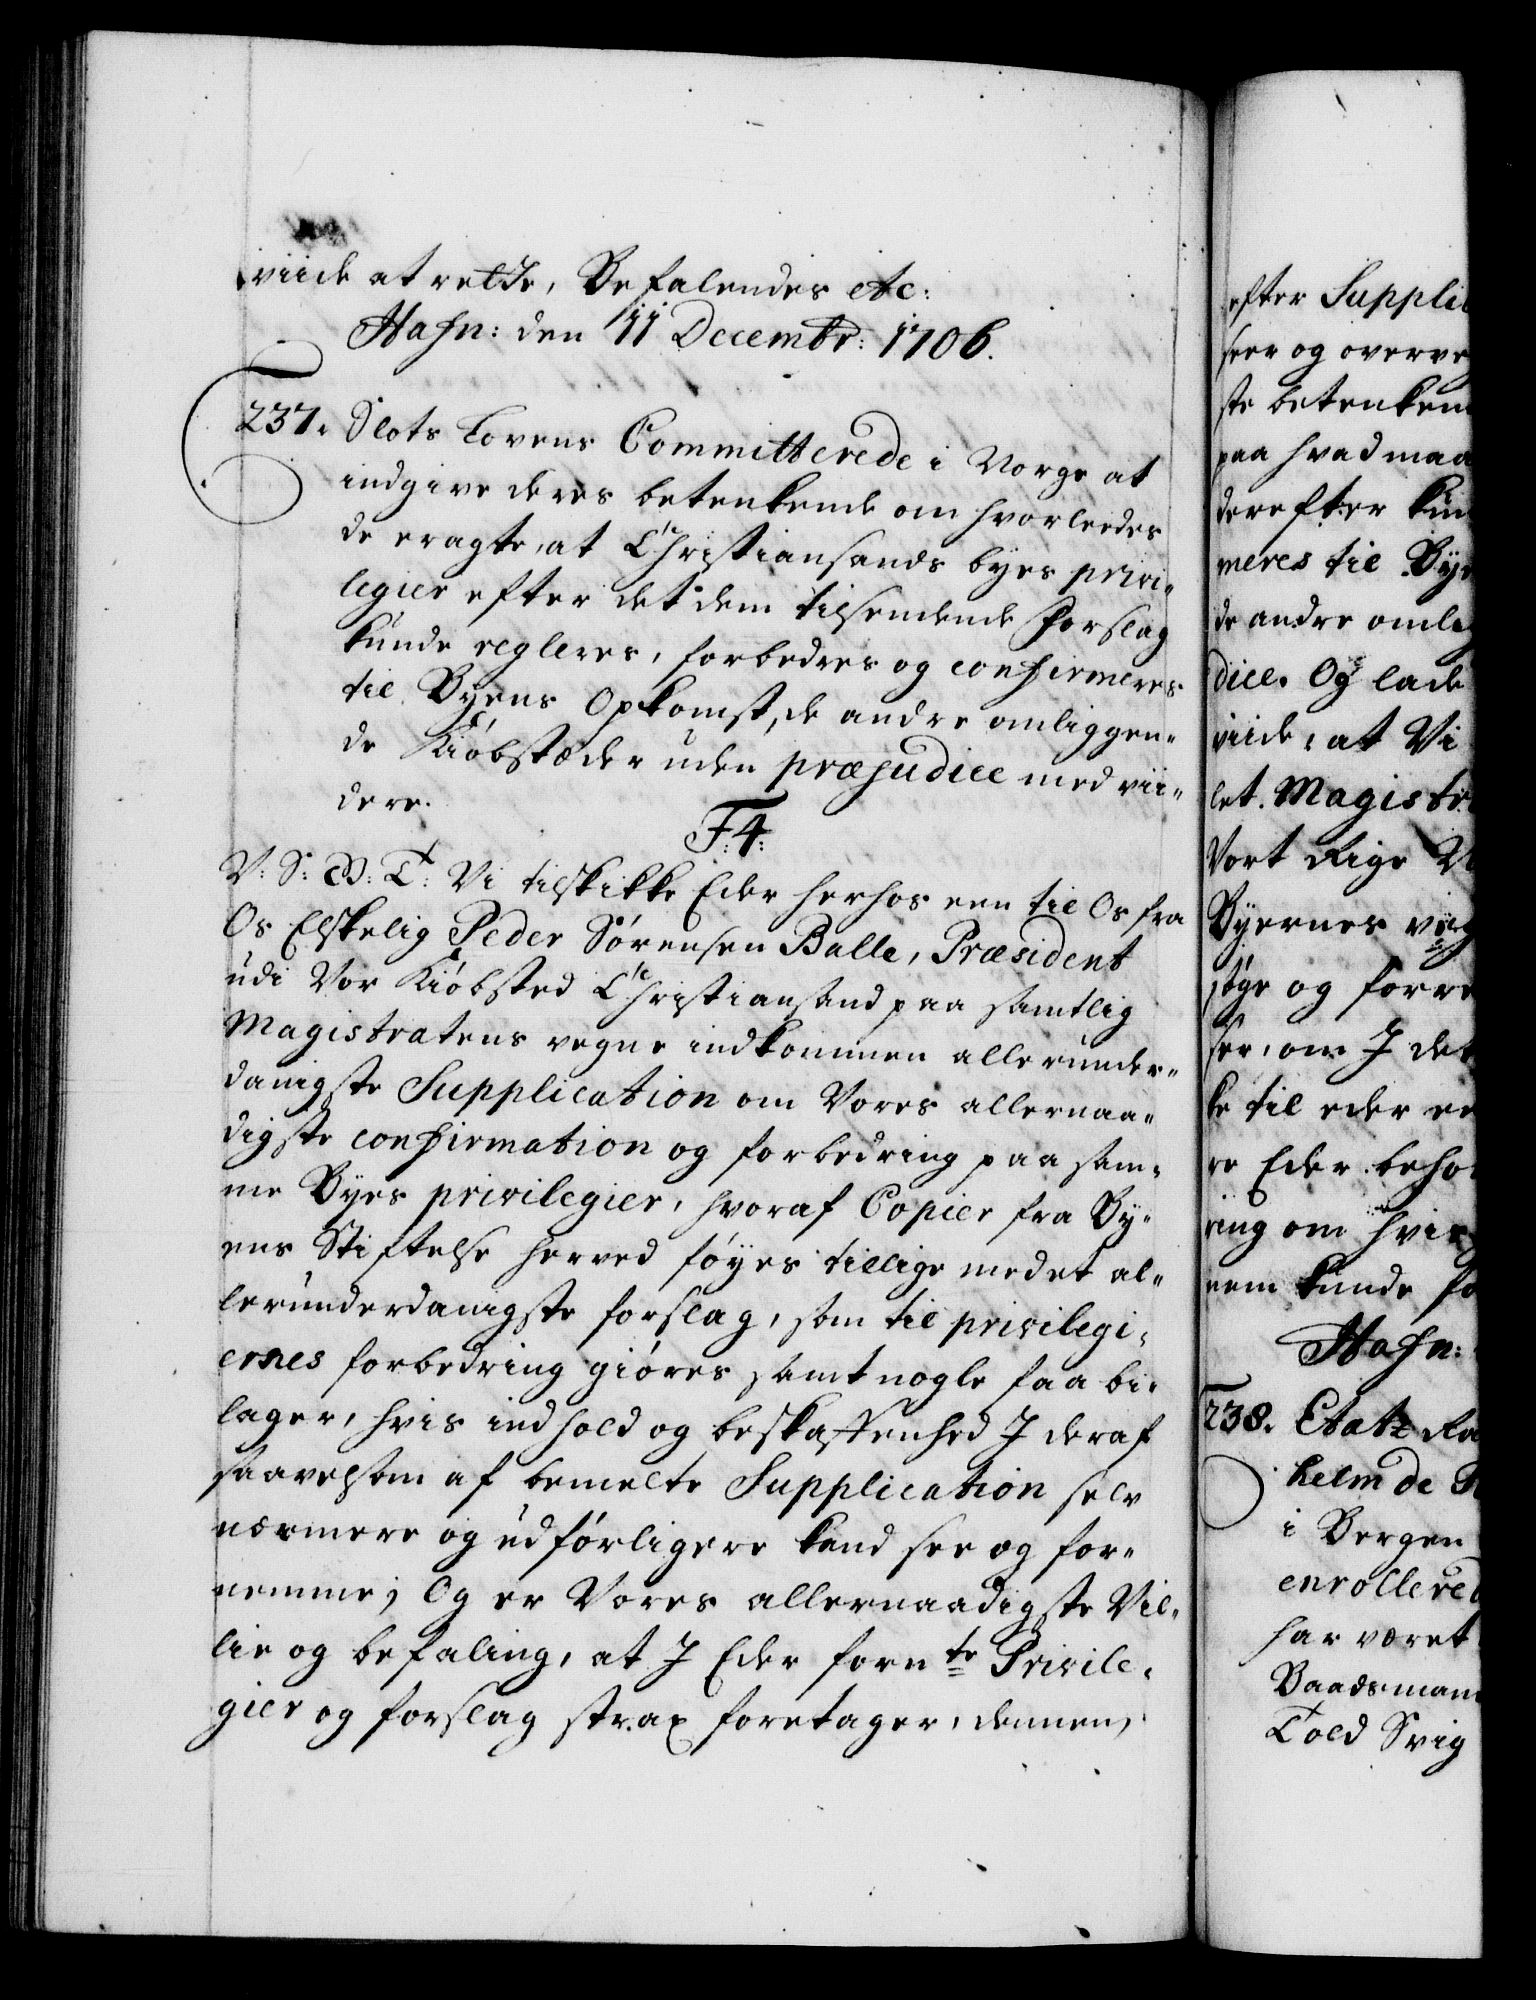 viide at rette, Befalendes etc:
Hafn: den 11 Decembr: 1706.
237. Slots Lovens Committerede i Norge at
indgive deres betenkende om hvorleedes
de eragte, at Christiansands byes privi-
legier efter det dem tilsendende Forslag
kunde regleres, forbedres og confirmeres
til Byens Opkomst, de andre omliggen-
de Kiøbstæder uden præjudice med vii-
dere.
F4:
V: S: G: T: Vi tilskikke Eder herhos een til Os fra
Os Elskelig Peder Sørensen Balle, Præsident
udi Vor Kiøbsted Christiansand paa samtlig
Magistratens vegne indkommen allerunder-
danigste Supplication om Vores allernaa-
digste confirmation og forbedring paa sam-
me Byes privilegier, hvoraf Copier fra By-
ens Stiftelse herved føyes tillige med et al-
lerunderdanigste forslag, som til privilegi-
ernes forbedring giøres samt nogle faa bi-
lager, hvis indhold og beskaffenhed J deraf
saavelsom af bemelte Supplication selv
nærmere og udførligere kand see og for-
nemme; Og er Vores allernaadigste Vil-
lie og befaling, at J Eder fornte Privile-
gier og forslag strax foretager, dennem
efter Suppli
seer og overve
ste betenken
paa hvad maa
derefter kun
meres til Bye
de andre omli
dice. Og lade
viide, at Vi
let. Magistr
Vort Rige N
Byernes
søge og forre
ser, om J det
ke til eder
re Eder beho
ring om hvis
nem kunde fo
Hafn:
238. Etatz Ra
helm de
i Bergen
enrollered
har været
Baadsmand
Told Svig